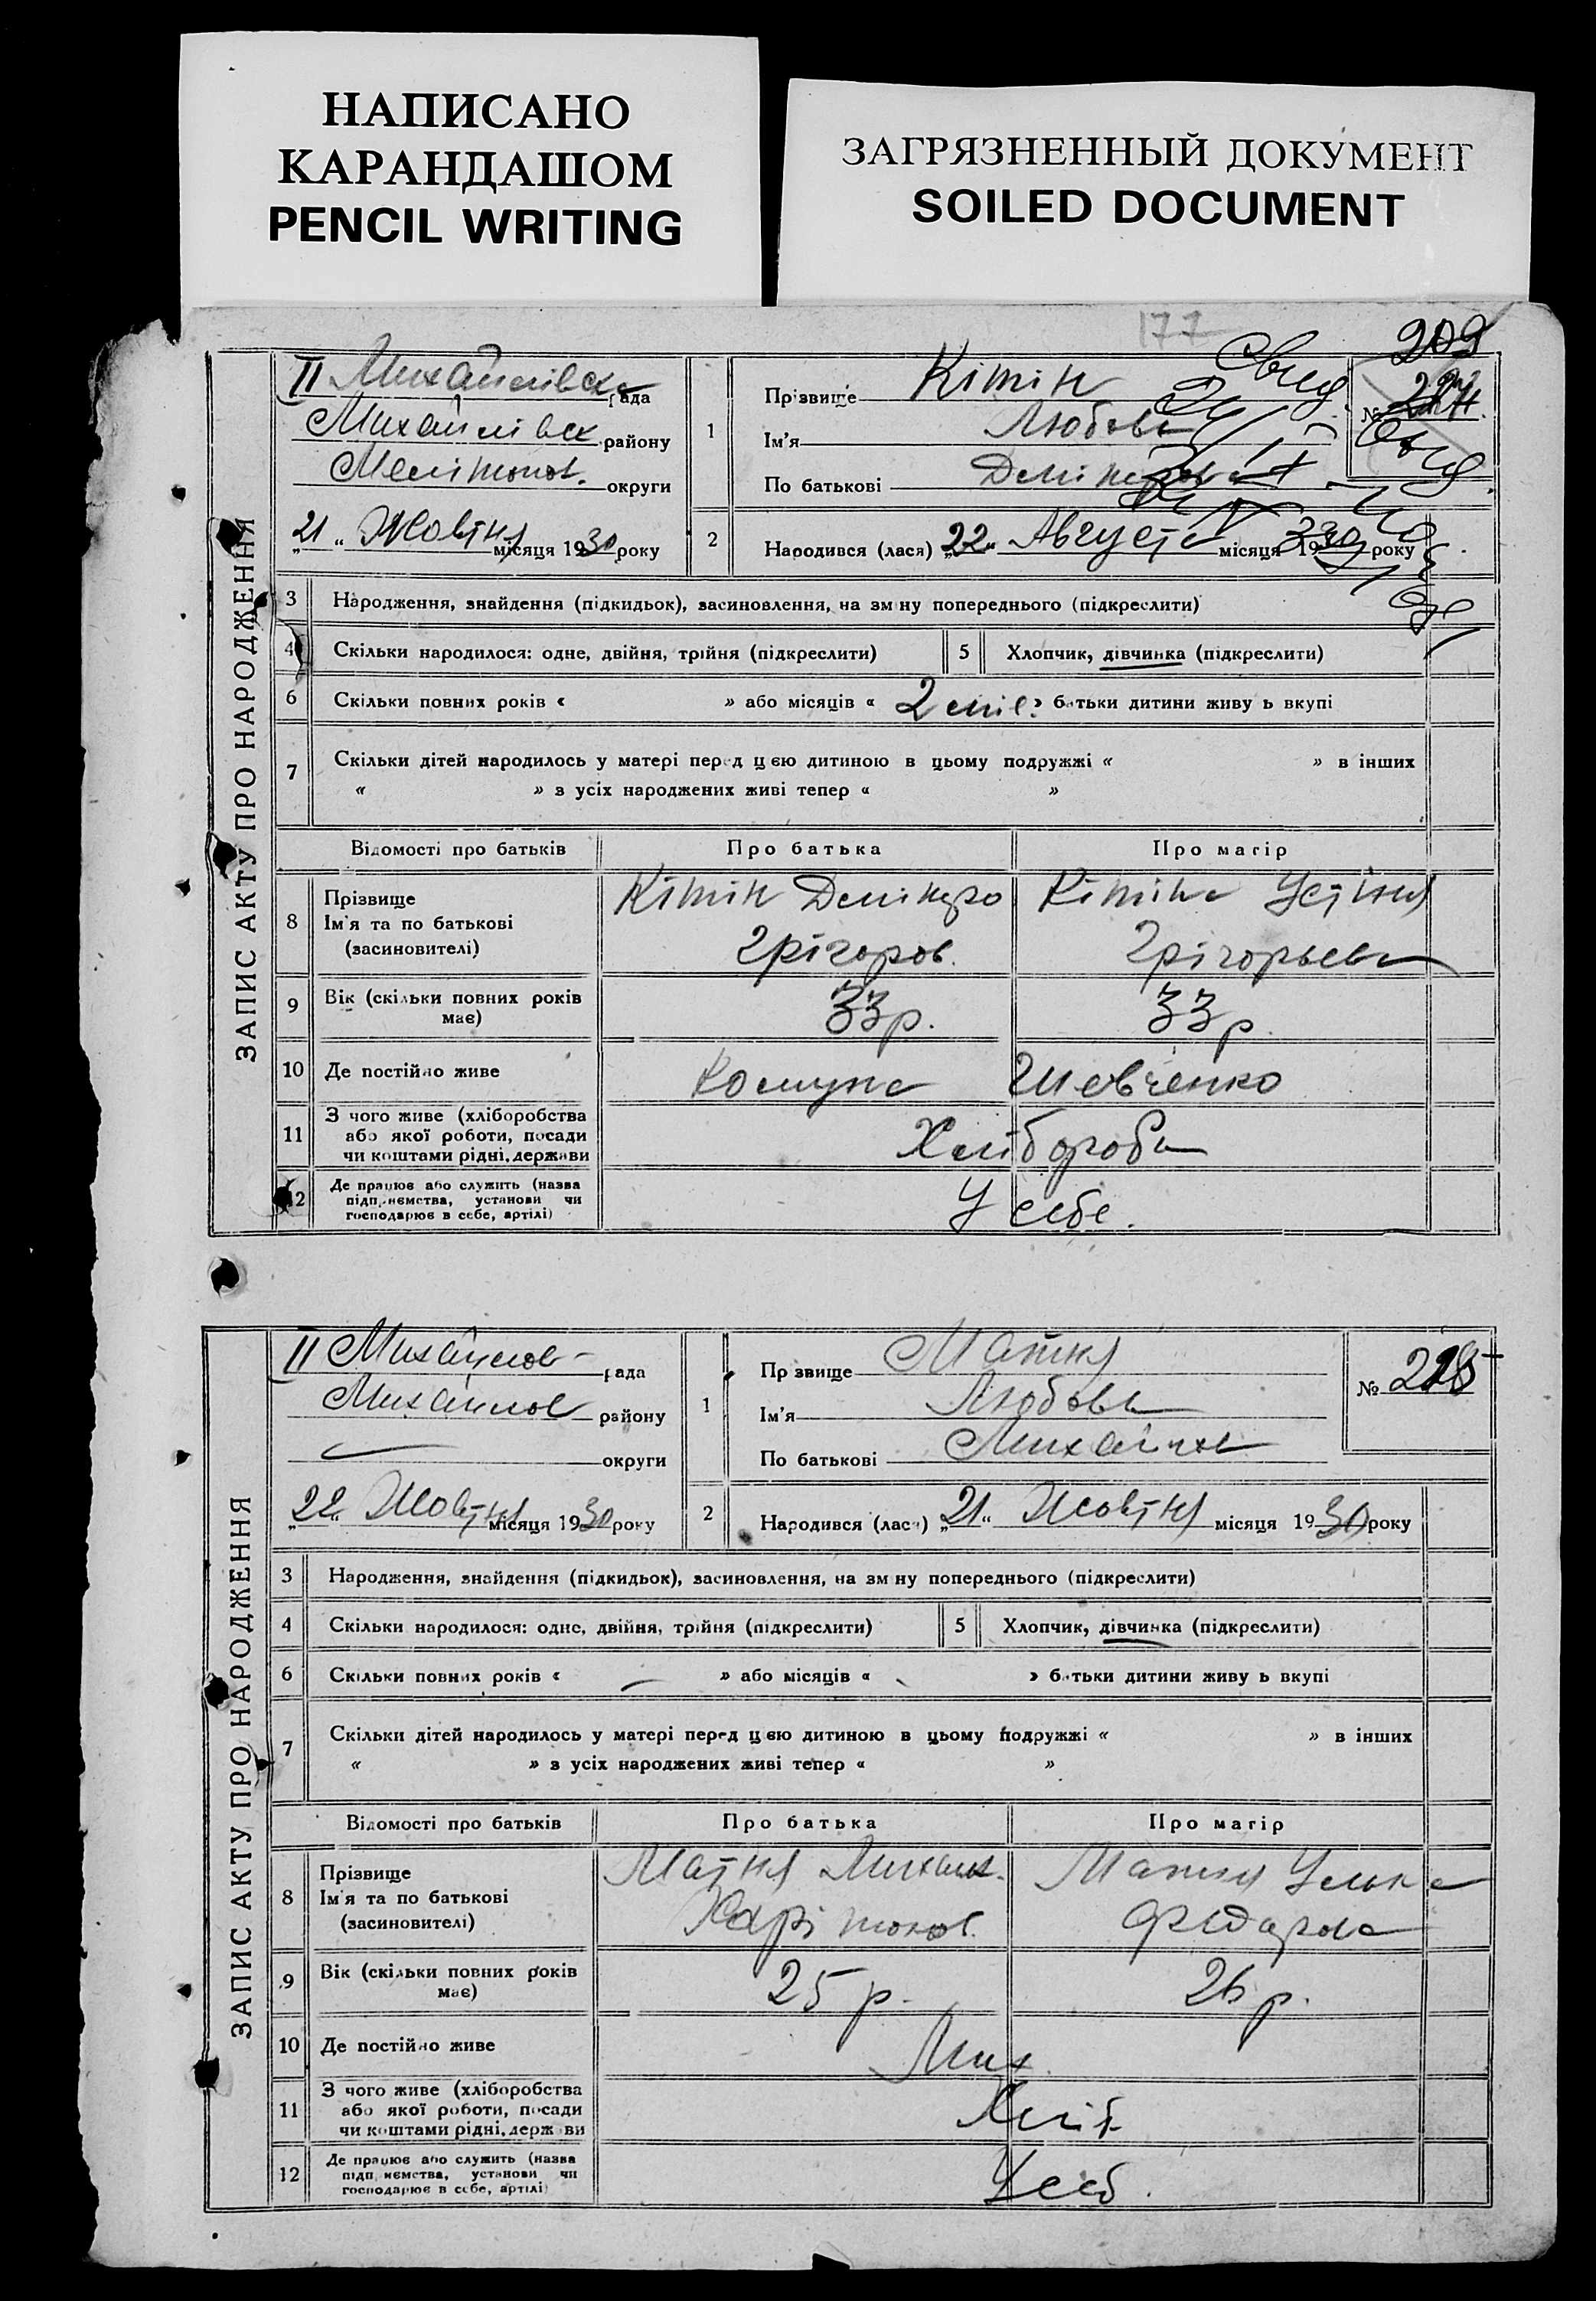 НАПИСАНО
КАРАНДАШОМ
PENCIL WRITING
ЗАГРЯЗНЕННЫЙ ДОКУМЕНТ
SOILED DOCUMENT
177
209
ЗАПИС АКТУ ПРО НАРОДЖЕННЯ
II Михайлівська рада
Михайлівск району
Мелітопол. округи
„21“ Жовтня місяця 1930 року
1
Прізвище Кітін
Ім'я Любовь
По батькові
№
2
Народився (лася) „22“ Августа місяця 1930 року
3 Народження, знайдення (підкидьок), засиновлення, на зміну попереднього (підкреслити)
4 Скільки народилося: одне, двійня, трійня (підкреслити)
5 Хлопчик, дівчинка (підкреслити)
6 Скільки повних років « » або місяців « 2 міс. » батьки дитини живуть вкупі
7 Скільки дітей народилось у матері перед цією дитиною в цьому подружжі « » в інших
« » з усіх народжених живі тепер « »
Відомості про батьків
Про батька
Про матір
8 Прізвище
Ім'я та по батькові
(засиновителі)
Кітін
Грігоров.
Кітіна Устіня
Грігорьевн
9 Вік (скільки повних років
має)
33 р.
33 р.
10 Де постійно живе
Комуна Шевченко
11 З чого живе (хліборобства
або якої роботи, посади
чи коштами рідні, держави
Хлібороби
12 Де працює або служить (назва
підприємства, установи чи
господарює в себе, артілі)
У себе.
ЗАПИС АКТУ ПРО НАРОДЖЕННЯ
II Михайлов рада
Михайлов району
округи
„22“ Жовтня місяця 1930 року
1
Прізвище Матня
Ім'я Любовь
По батькові
№
2
Народився (лася) „21“ Жовтня місяця 1930 року
3 Народження, знайдення (підкидьок), засиновлення, на зміну попереднього (підкреслити)
4 Скільки народилося: одне, двійня, трійня (підкреслити)
5 Хлопчик, дівчинка (підкреслити)
6 Скільки повних років « — » або місяців « » батьки дитини живуть вкупі
7 Скільки дітей народилось у матері перед цією дитиною в цьому подружжі « » в інших
« » з усіх народжених живі тепер « »
Відомості про батьків
Про батька
Про матір
8 Прізвище
Ім'я та по батькові
(засиновителі)
Матня Михаил.
Харітонов.
Матня
Федорова
9 Вік (скільки повних років
має)
25 р.
26 р.
10 Де постійно живе
Мих
11 З чого живе (хліборобства
або якої роботи, посади
чи коштами рідні, держави
Хліб
12 Де працює або служить (назва
підприємства, установи чи
господарює в себе, артілі)
У себ.